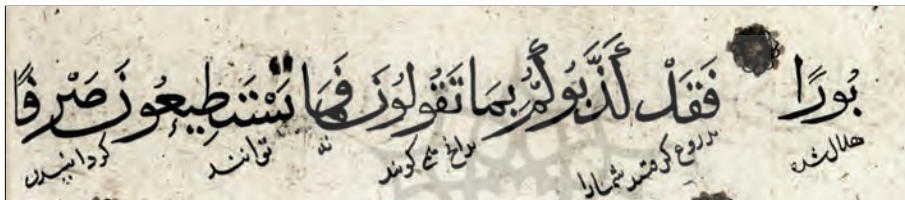 بُورًا فَقَدْ كَذَّبُوكُمْ بِمَا تَقُولُونَ فَمَا تَسْتَطِيعُونَ صَرْفًا
هلاك شده بدروغ كرفتند شمارا بدانچ می كویند نه توانند كردانیدن